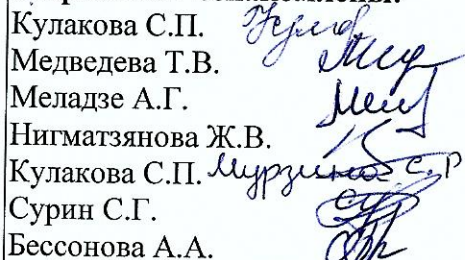 Кулакова С.П.
Медведева Т.В.
Меладзе А.Г.
Нигматзянова Ж.В.
Кулакова С.П. Мурзина С.Р
Сурин С.Г.
Бессонова А.А.